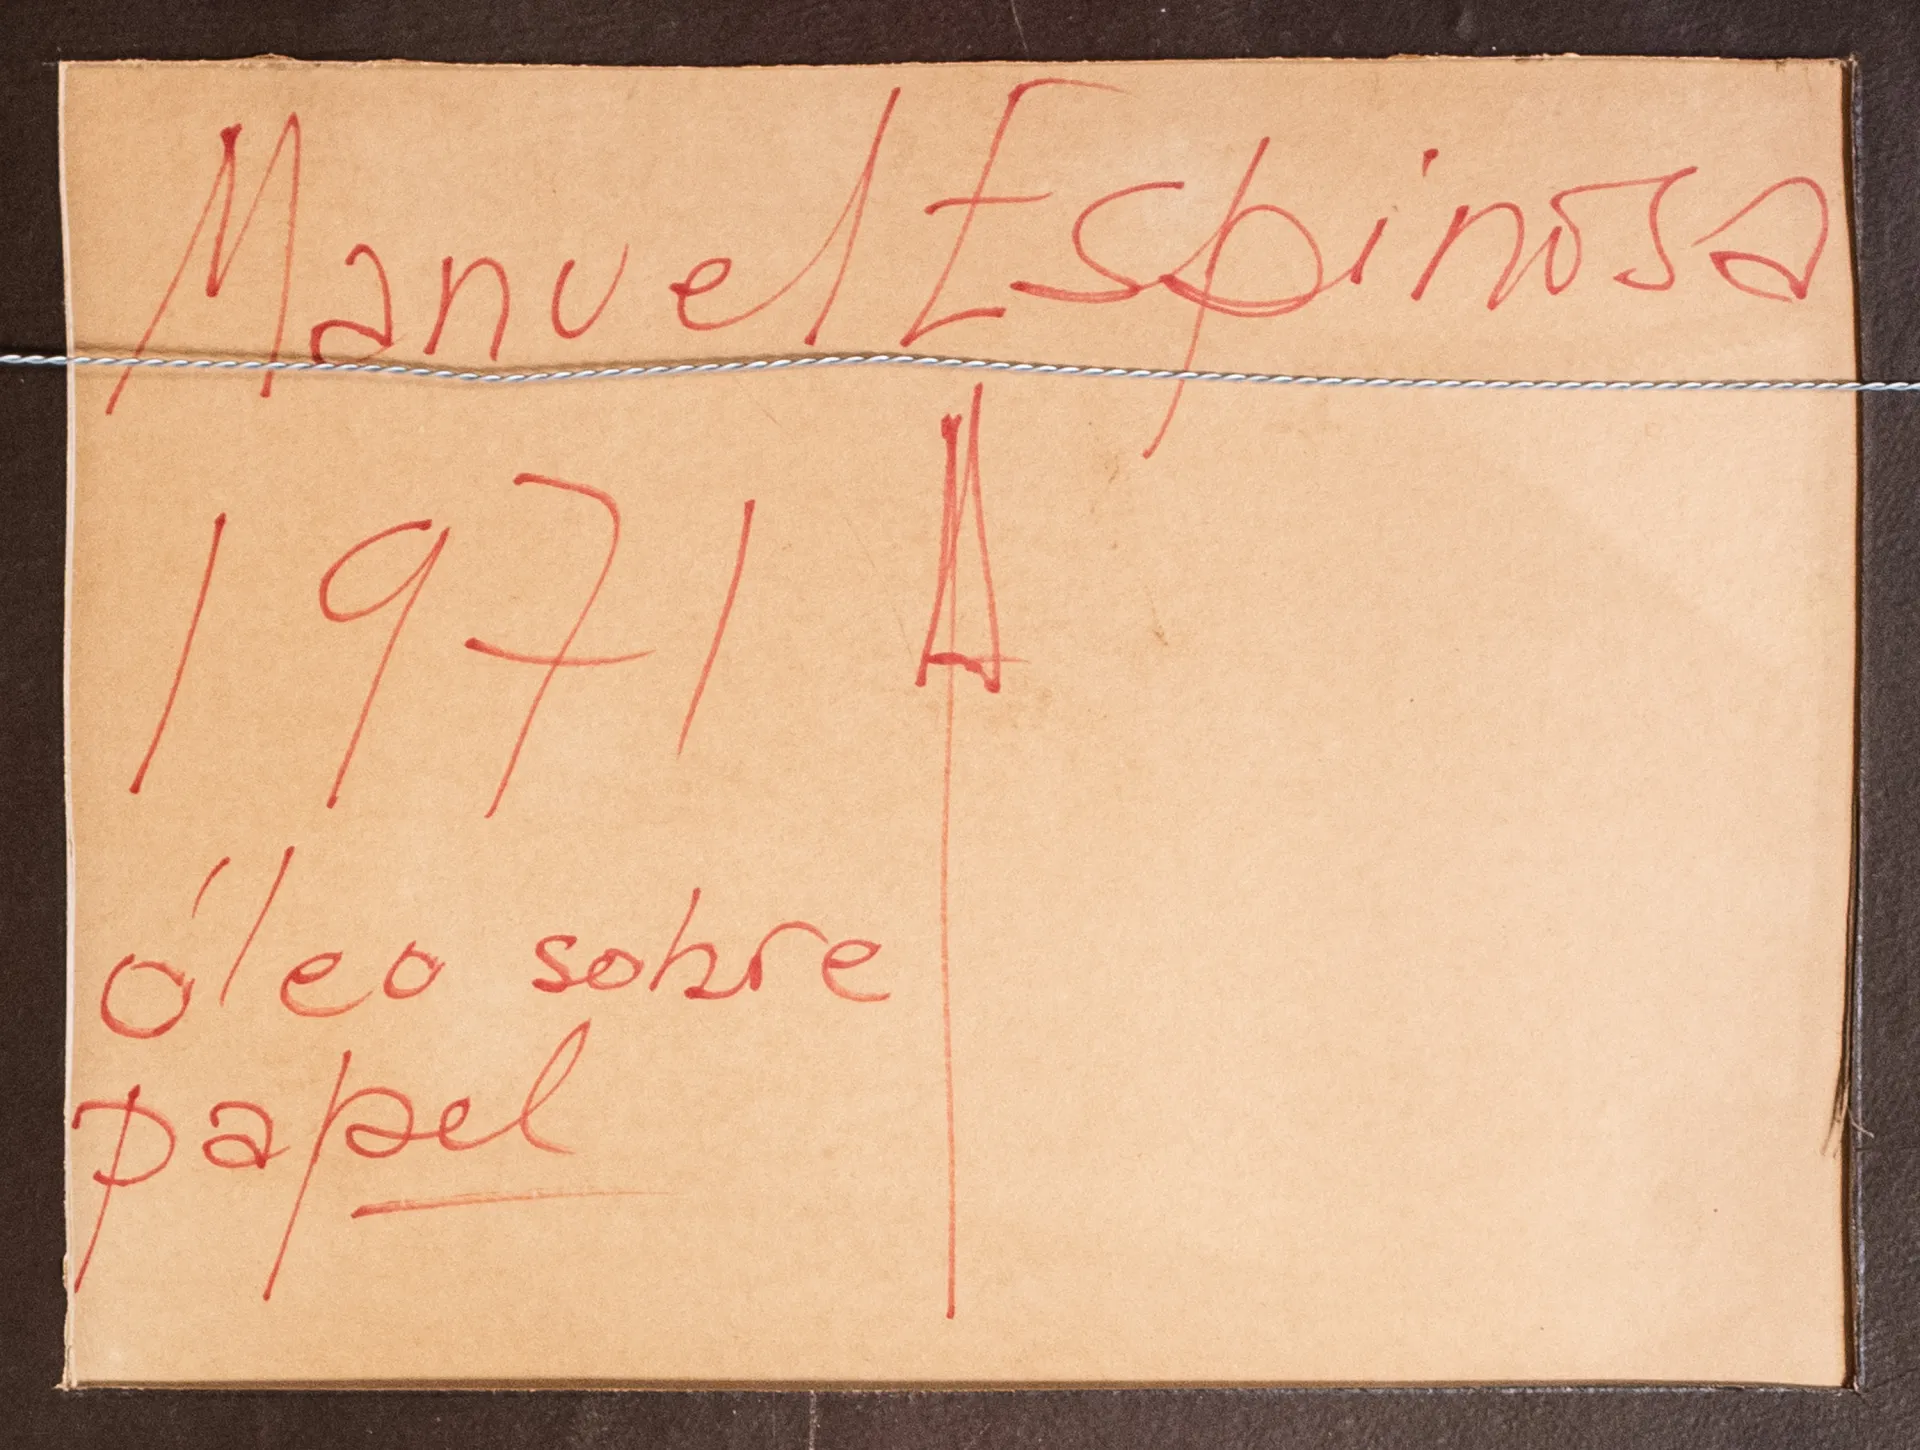 Manuel Espinosa
1971
óleo sobre
papel